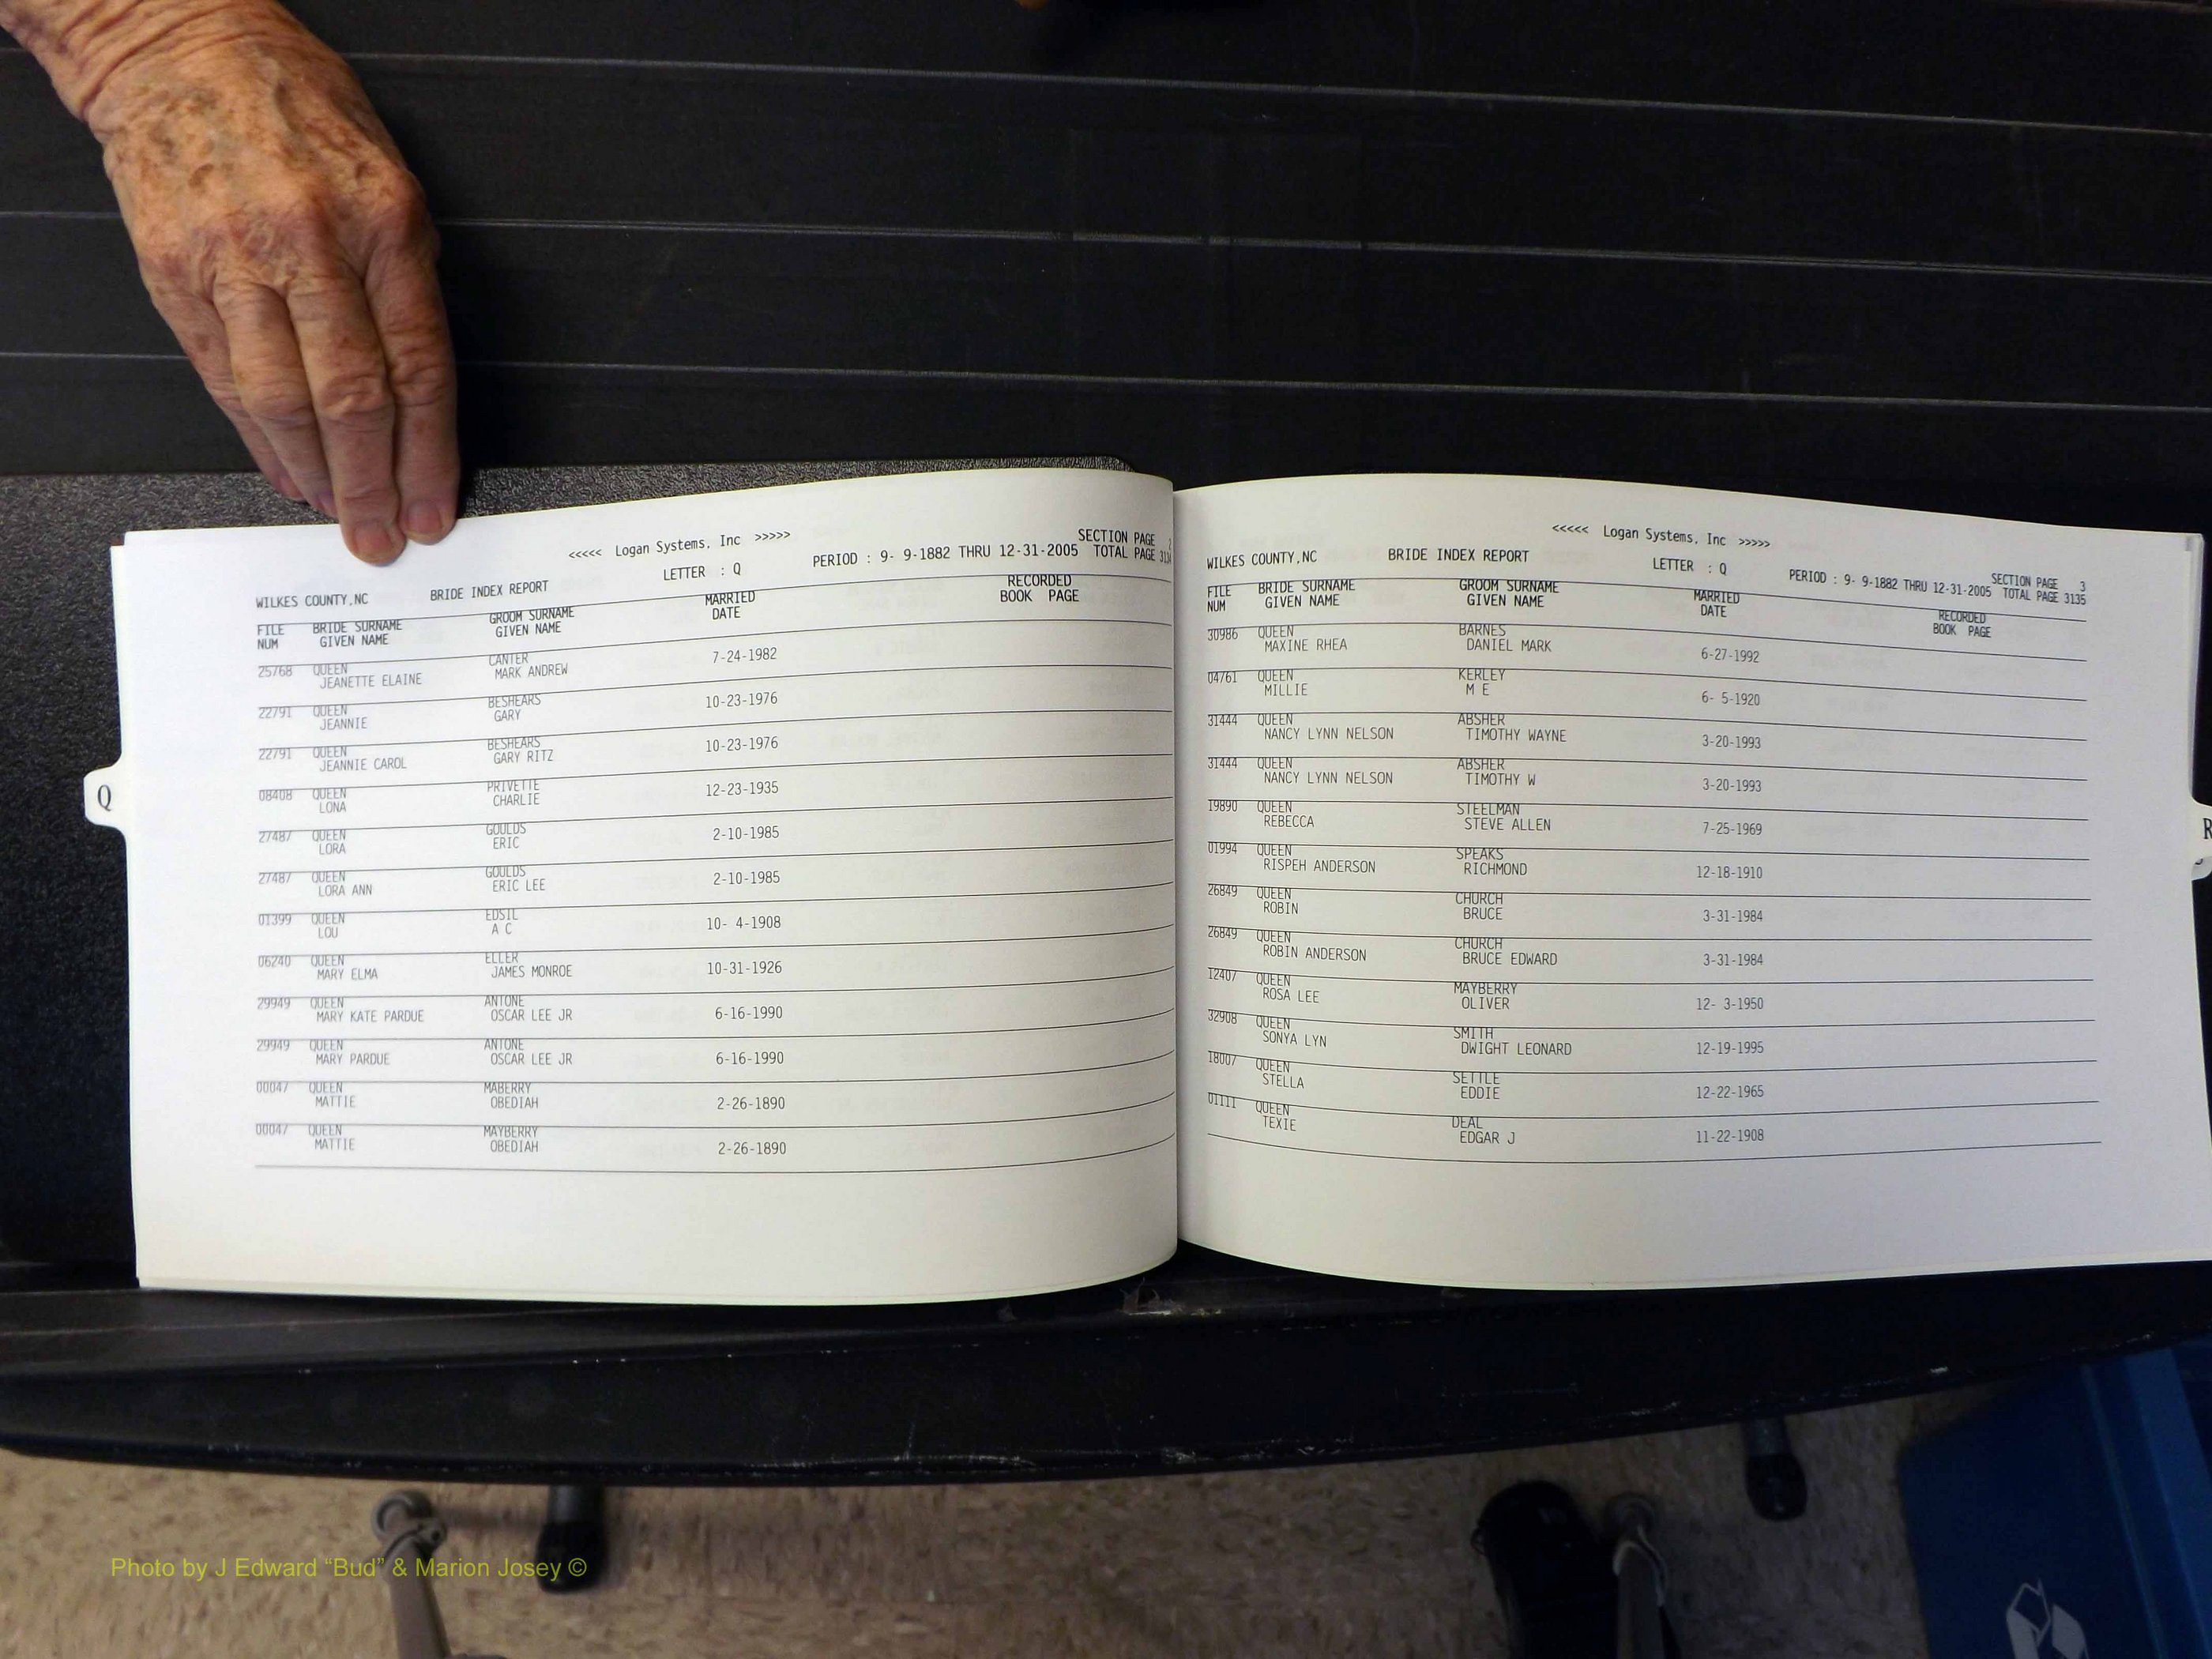 <<<<< Logan Systems, Inc >>>>>
SECTION PAGE 2
WILKES COUNTY,NC BRIDE INDEX REPORT LETTER : Q PERIOD : 9- 9-1882 THRU 12-31-2005 TOTAL PAGE 3134
FILE BRIDE SURNAME GROOM SURNAME MARRIED RECORDED
NUM GIVEN NAME GIVEN NAME DATE BOOK PAGE
25768 QUEEN CANTER 7-24-1982
JEANETTE ELAINE MARK ANDREW
22791 QUEEN BESHEARS 10-23-1976
JEANNIE GARY
22791 QUEEN BESHEARS 10-23-1976
JEANNIE CAROL GARY RITZ
08408 QUEEN PRIVETTE 12-23-1935
LONA CHARLIE
27487 QUEEN GOULDS 2-10-1985
LORA ERIC
27487 QUEEN GOULDS 2-10-1985
LORA ANN ERIC LEE
01399 QUEEN EDSIL 10- 4-1908
LOU A C
06240 QUEEN ELLER 10-31-1926
MARY ELMA JAMES MONROE
29949 QUEEN ANTONE 6-16-1990
MARY KATE PARDUE OSCAR LEE JR
29949 QUEEN ANTONE 6-16-1990
MARY PARDUE OSCAR LEE JR
00047 QUEEN MABERRY 2-26-1890
MATTIE OBEDIAH
00047 QUEEN MAYBERRY 2-26-1890
MATTIE OBEDIAH
Q
<<<<< Logan Systems, Inc >>>>>
SECTION PAGE 3
WILKES COUNTY,NC BRIDE INDEX REPORT LETTER : Q PERIOD : 9- 9-1882 THRU 12-31-2005 TOTAL PAGE 3135
FILE BRIDE SURNAME GROOM SURNAME MARRIED RECORDED
NUM GIVEN NAME GIVEN NAME DATE BOOK PAGE
30986 QUEEN BARNES 6-27-1992
MAXINE RHEA DANIEL MARK
04761 QUEEN KERLEY 6- 5-1920
MILLIE M E
31444 QUEEN ABSHER 3-20-1993
NANCY LYNN NELSON TIMOTHY WAYNE
31444 QUEEN ABSHER 3-20-1993
NANCY LYNN NELSON TIMOTHY W
19890 QUEEN STEELMAN 7-25-1969
REBECCA STEVE ALLEN
01994 QUEEN SPEAKS 12-18-1910
RISPEH ANDERSON RICHMOND
26849 QUEEN CHURCH 3-31-1984
ROBIN BRUCE
26849 QUEEN CHURCH 3-31-1984
ROBIN ANDERSON BRUCE EDWARD
12407 QUEEN MAYBERRY 12- 3-1950
ROSA LEE OLIVER
32908 QUEEN SMITH 12-19-1995
SONYA LYN DWIGHT LEONARD
18007 QUEEN SETTLE 12-22-1965
STELLA EDDIE
01111 QUEEN DEAL 11-22-1908
TEXIE EDGAR J
R
Photo by J Edward “Bud” & Marion Josey ©